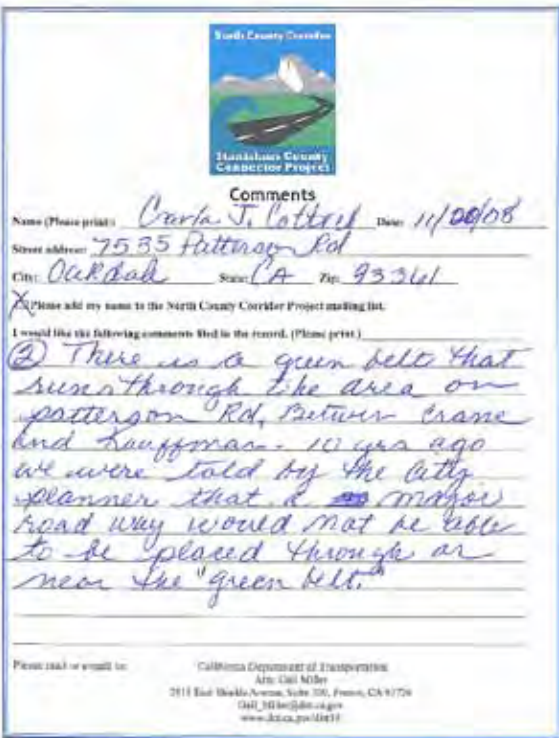 North County Corridor
Stanislaus County
Connector Project
Comments
Name (Please print): Carla J. Cottrell Date: 11/20/08
Street address: 7535 Patterson Rd
City: Oakdale State: CA Zip: 93361
X Please add my name to the North County Corridor Project mailing list.
I would like the following comments filed in the record. (Please print)
② There is a green belt that
runs through the area on
patterson Rd, Between Crane
and Kauffman. 10 yrs ago
we were told by the city
planner that a major
road way would not be able
to be placed through or
near the "green belt."
Please mail or email to:
California Department of Transportation
Attn: Gail Miller
2015 East Shields Avenue, Suite 100, Fresno, CA 93726
Gail_Miller@dot.ca.gov
www.dot.ca.gov/dist10